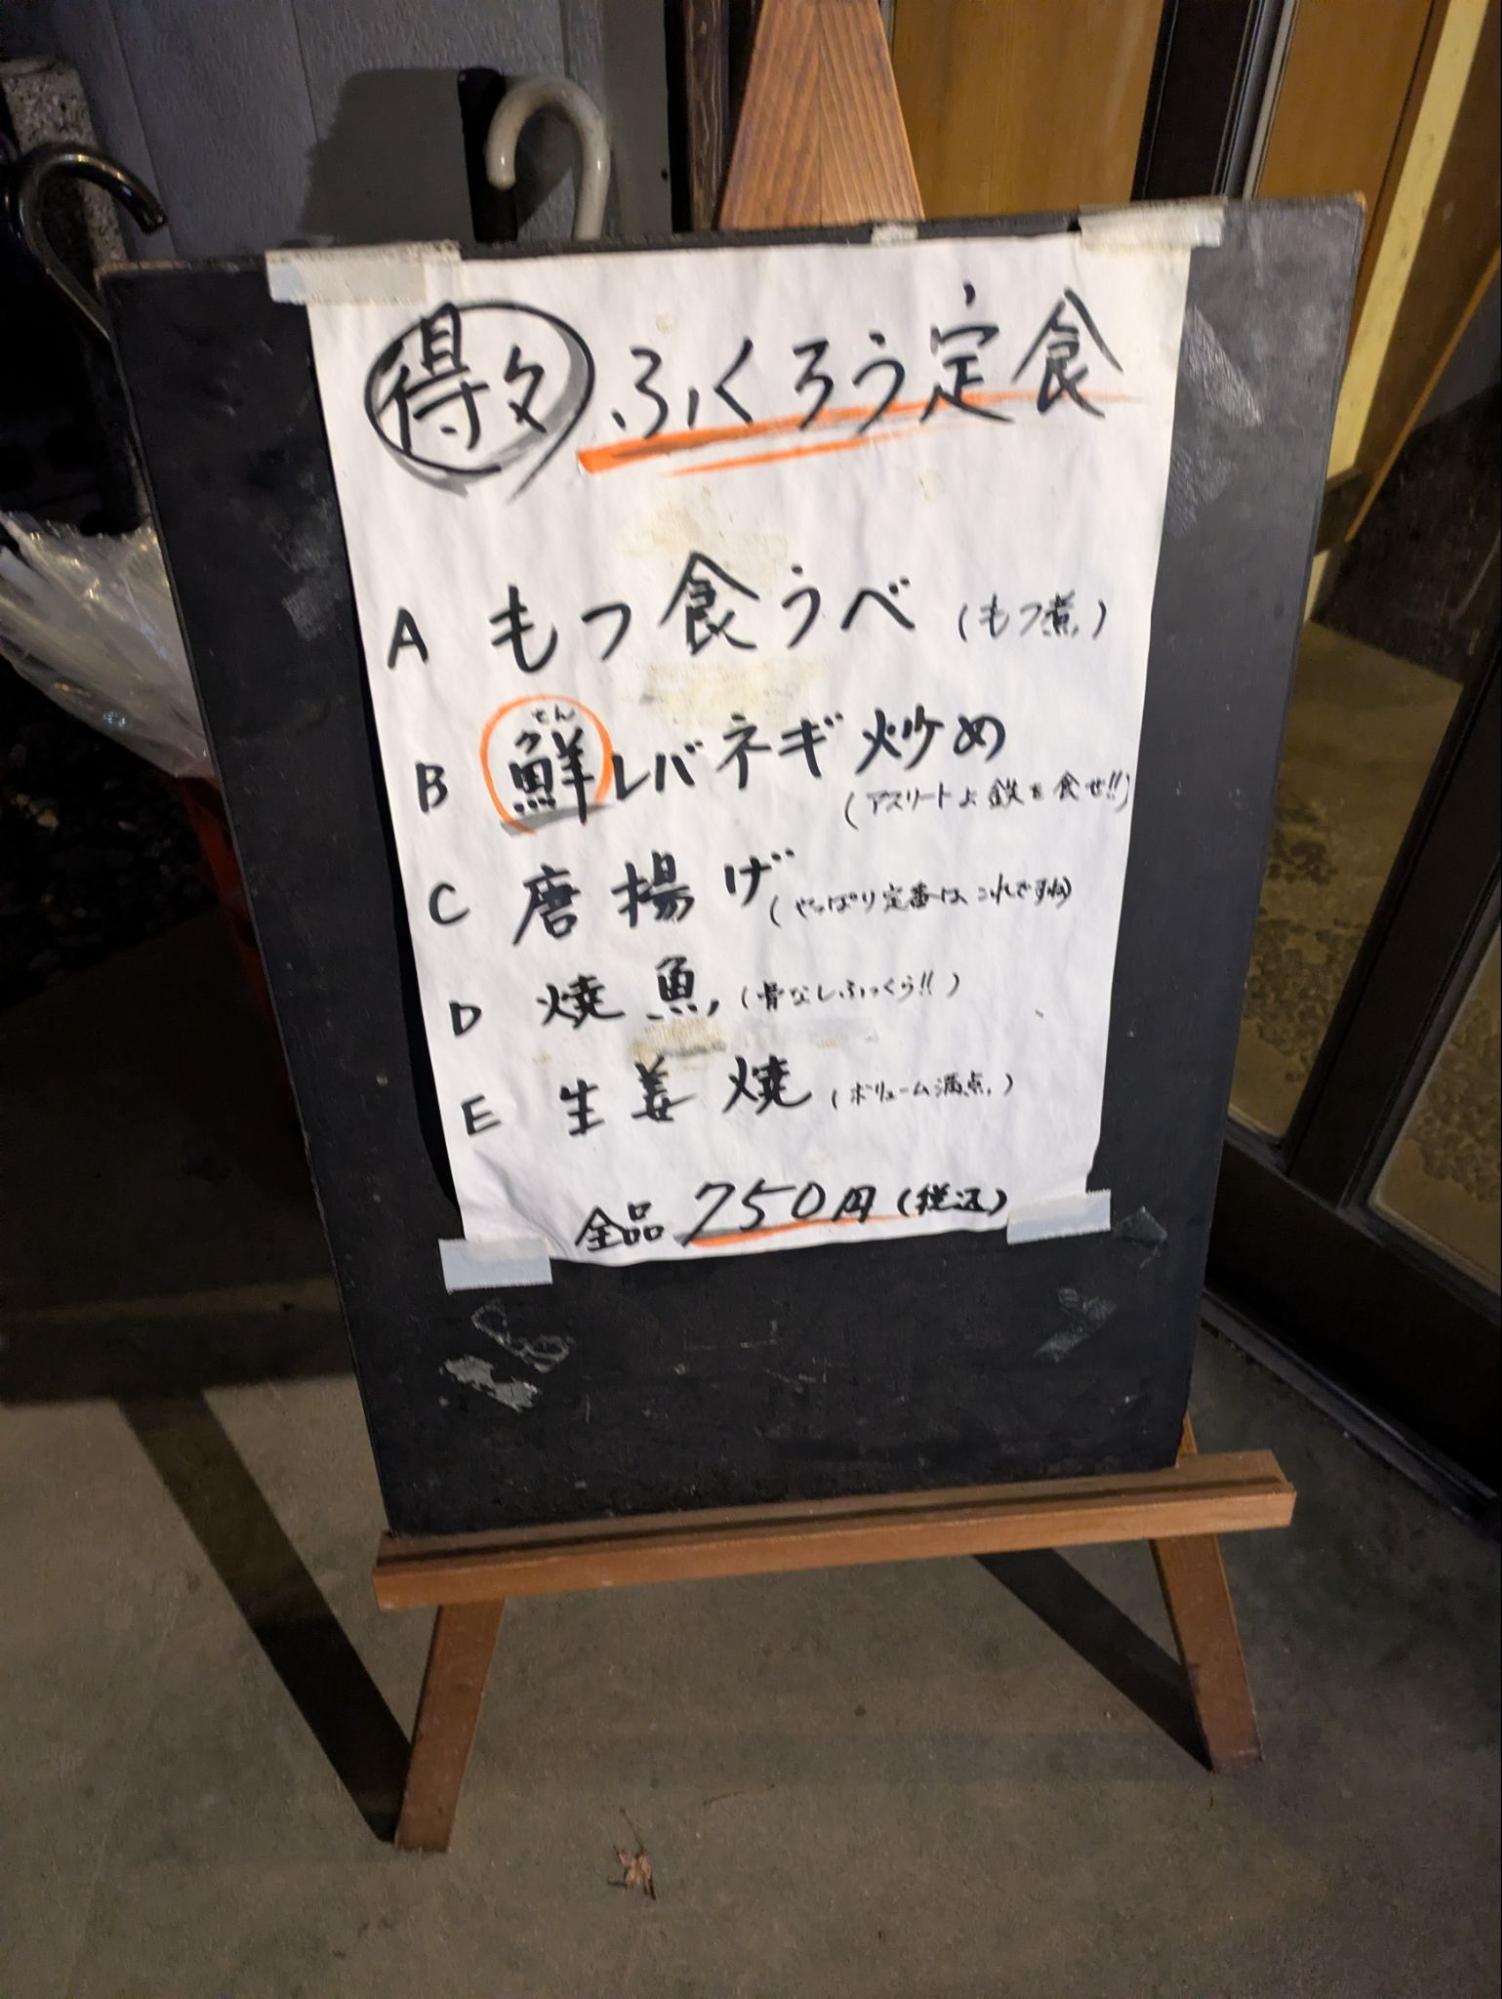 得々 ふくろう定食
A もつ食うべ (もつ煮)
せん
B 鮮レバネギ炒め
(アスリートよ 鉄を食せ!!)
C 唐揚げ (やっぱり定番は、これですね)
D 焼魚 (骨なしふっくら!!)
E 生姜焼 (ボリューム満点)
全品 750円 (税込)